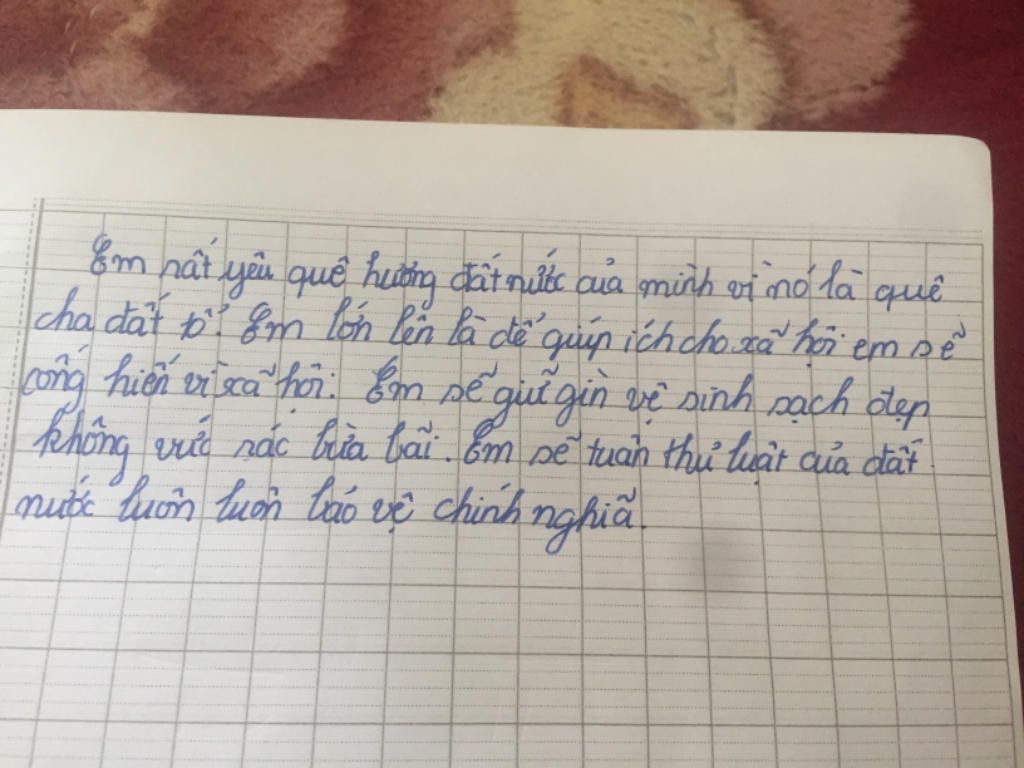 Em rất yêu quê hương đất nước của mình vì nó là quê
cha đất tổ. Em lớn lên là để giúp ích cho xã hội em sẽ
cống hiến vì xã hội. Em sẽ giữ gìn vệ sinh sạch đẹp
không vức rác bừa bãi. Em sẽ tuân thủ luật của đất
nước luôn luôn bảo vệ chính nghĩa.